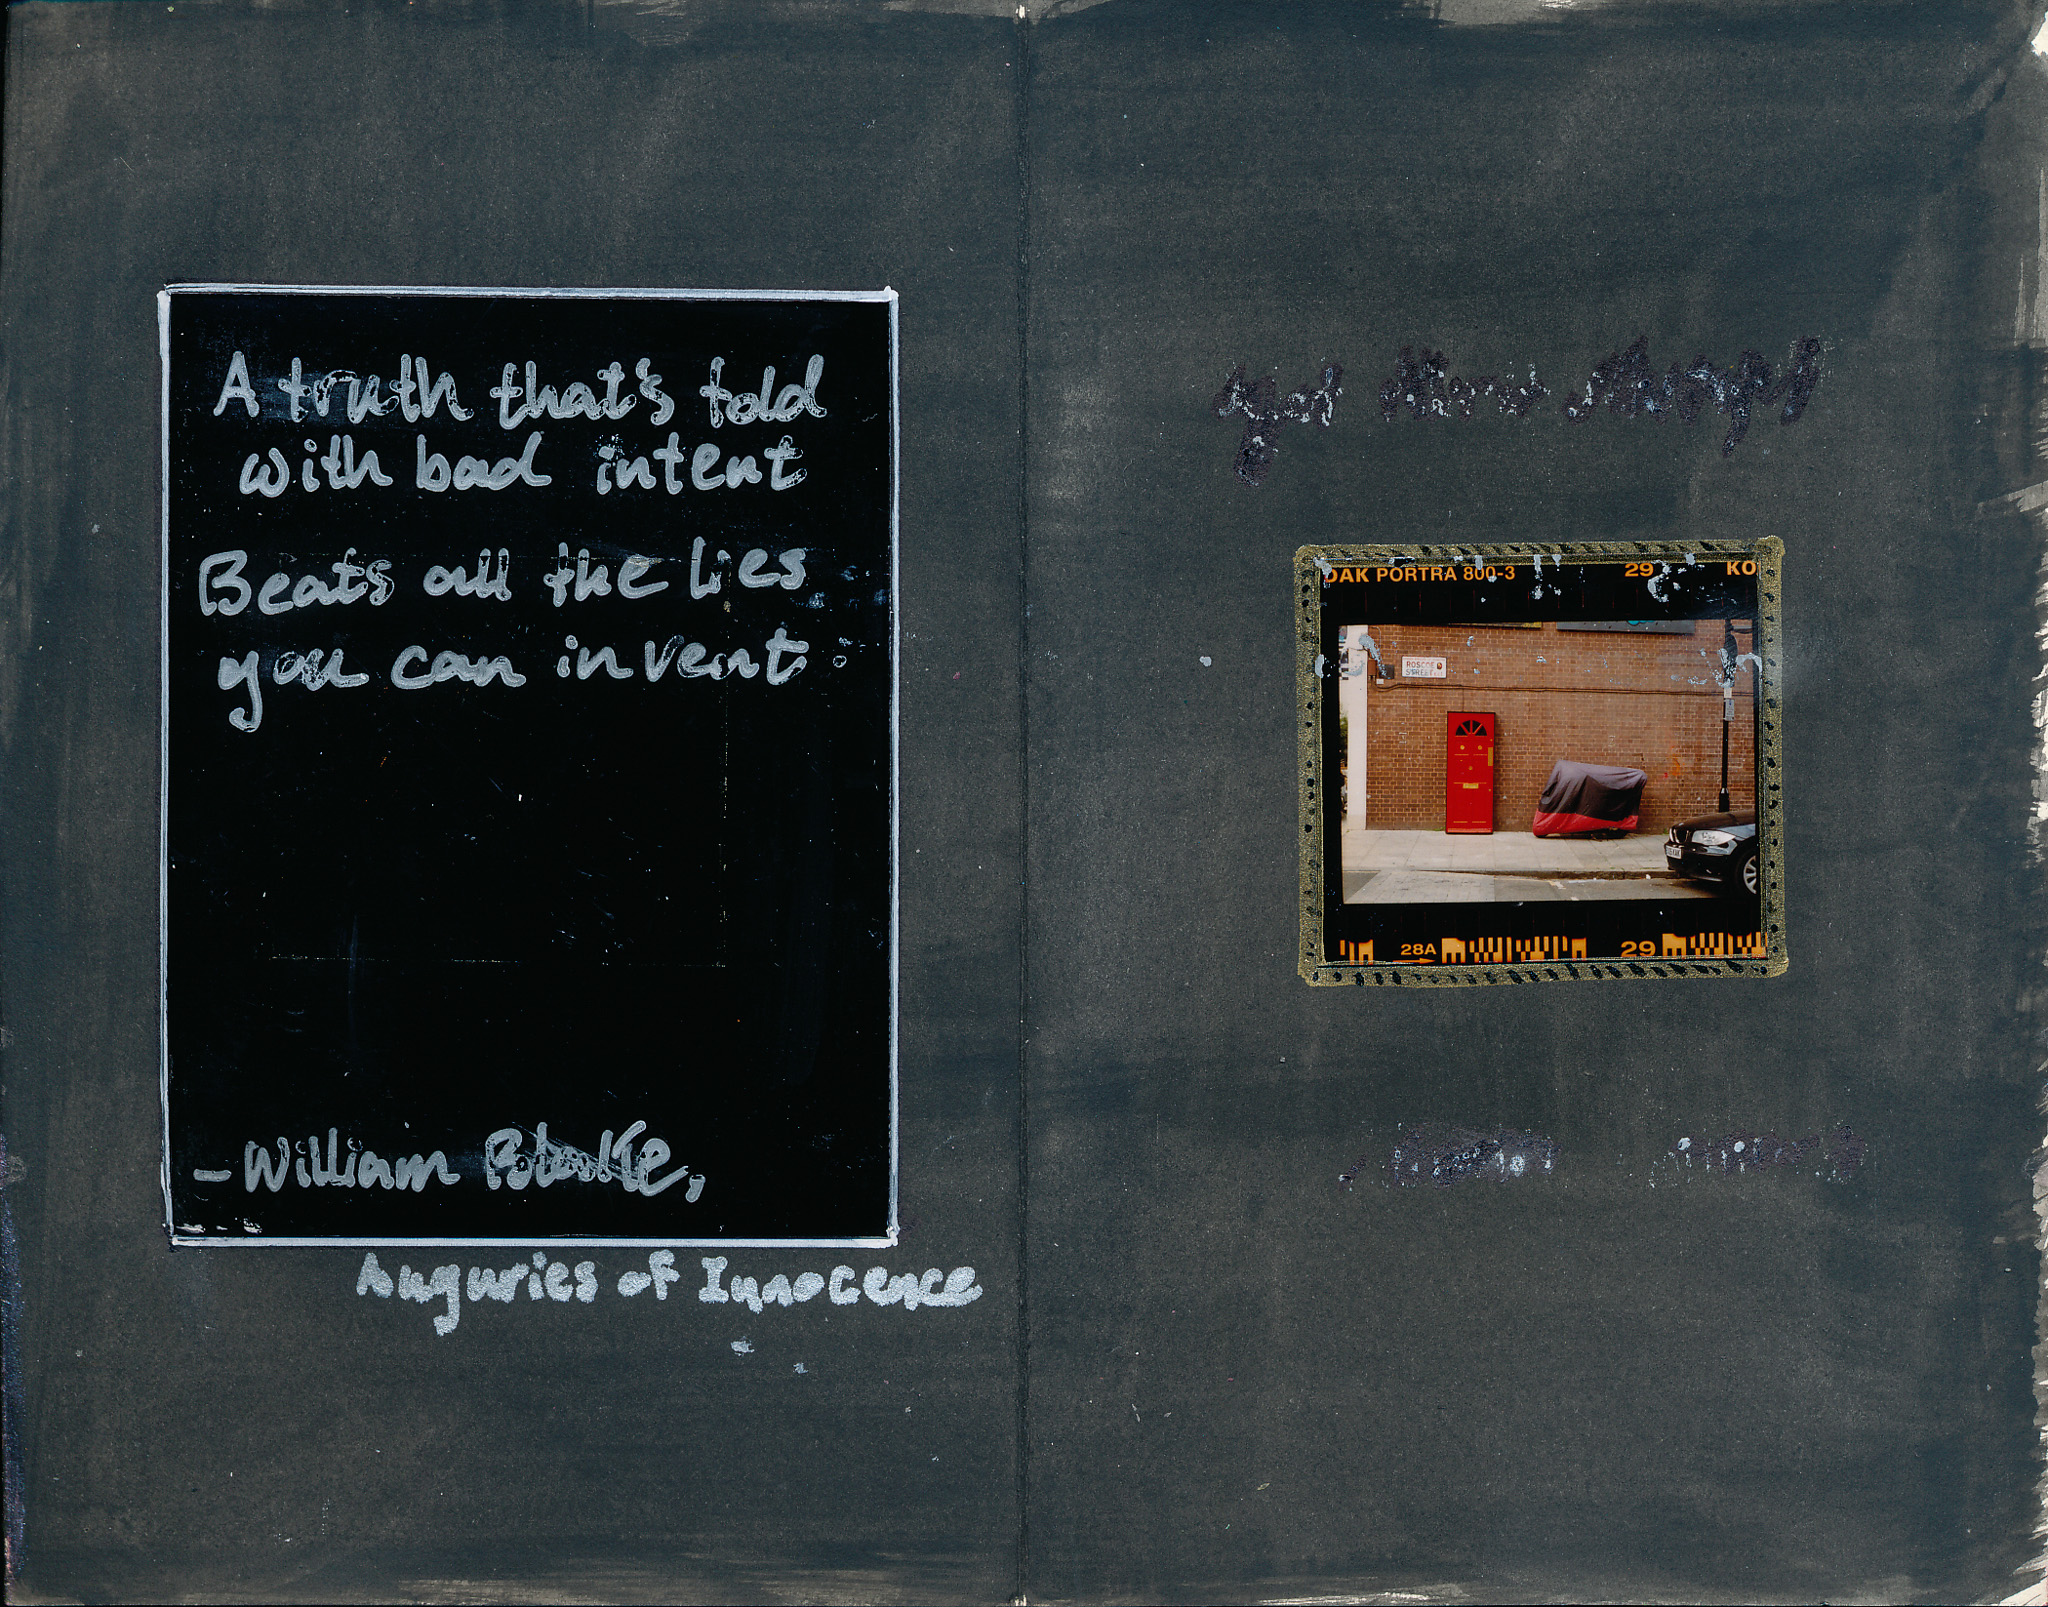 A truth that's told
with bad intent
Beats all the lies
you can invent
- William Blake,
Auguries of Innocence
DAK PORTRA 800-3 29 KO
ROSCOE
STREET
28A 29